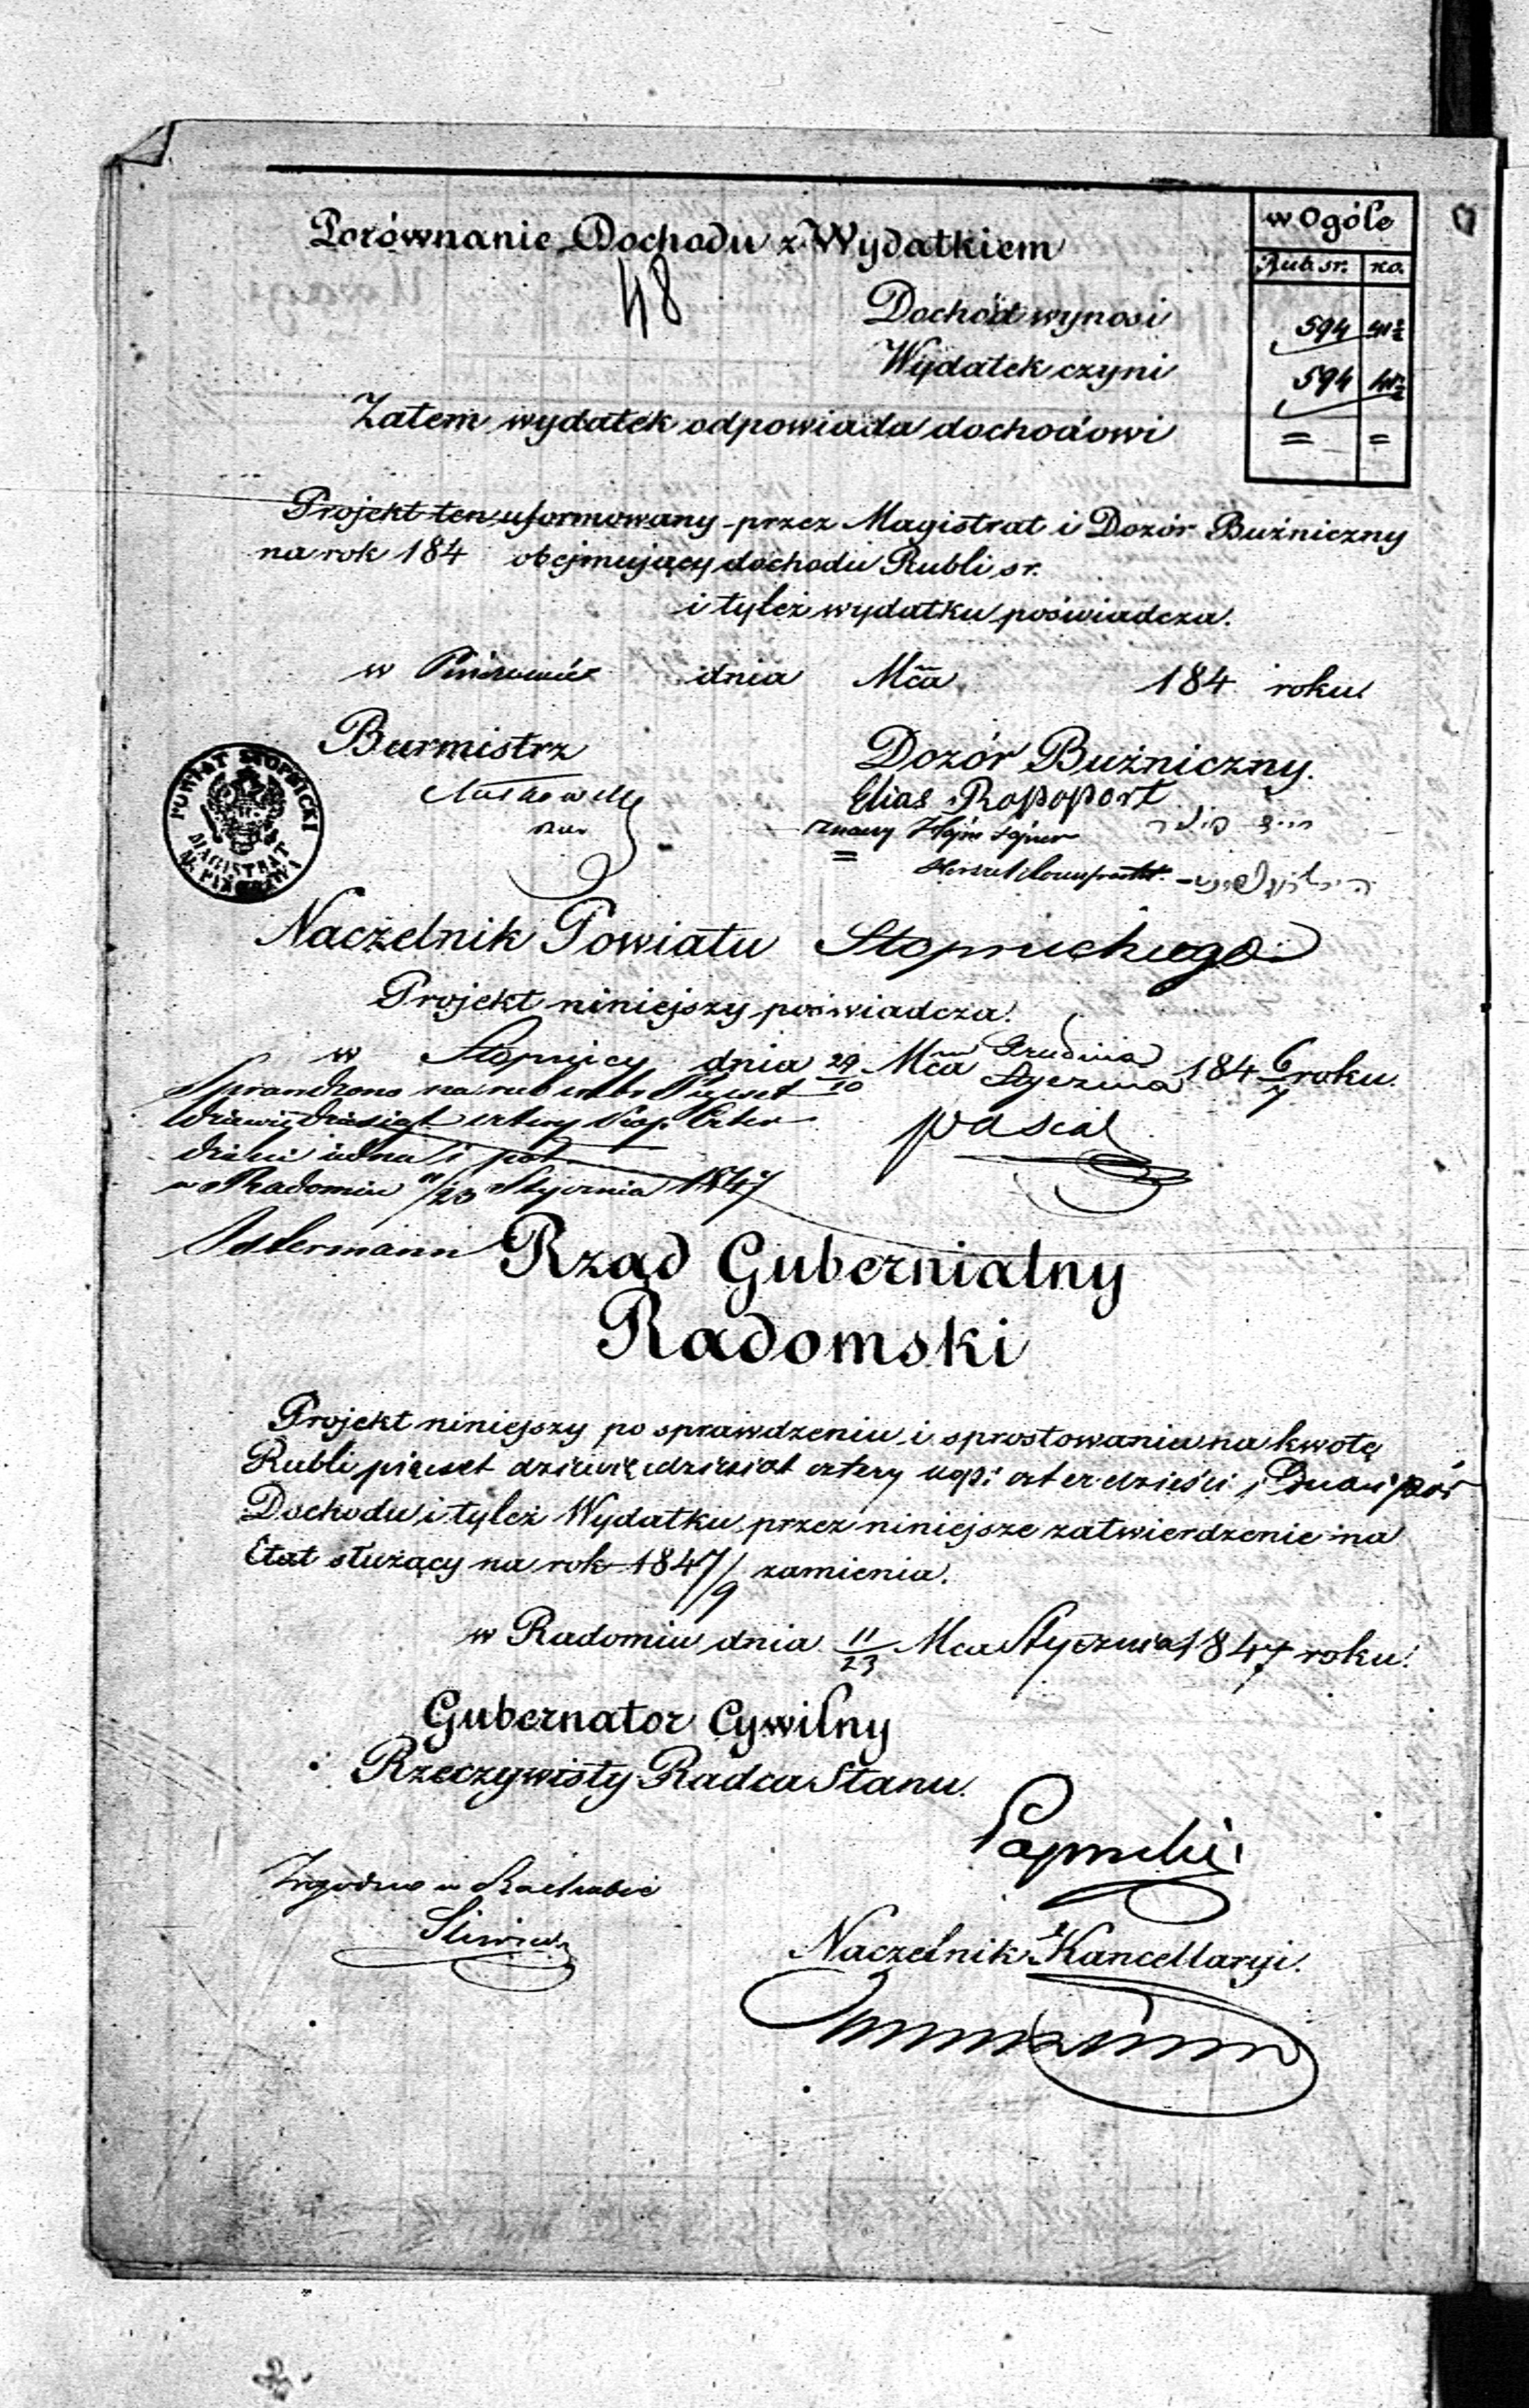 Porównanie Dochodu z Wydatkiem
w Ogóle
Rub. sr. ko.
48
Dochód wynosi 594 41½
Wydatek czyni 594 41½
Zatem wydatek odpowiada dochodowi = =
Projekt ten uformowany przez Magistrat i Dozór Bużniczny
na rok 184 obejmujący dochodu Rubli sr.
i tyleż wydatku poświadcza.
w Pińczowie dnia Mca 184 roku
Burmistrz
Dozór Bużniczny.
POWIAT STOPNICKI
MAGISTRAT
M. PIŃCZOWA
Elias Rapoport
Naczelnik Powiatu Stopnickiego
Projekt niniejszy poświadcza.
w Stopnicy dnia 29/10 Mca Grudnia/Stycznia 184 6/7 roku.
Sprawdzono na rub Pięćset
dziewięćdziesiąt cztery kop. czter
dzieści jedna i pół
w Radomiu 11/23 Stycznia 1847
Rząd Gubernialny
Radomski
Projekt niniejszy po sprawdzeniu i sprostowaniu na kwotę
Rubli pięćset dziewięćdziesiat cztery kop: czterdzieści i pół
Dochodu i tyleż Wydatku przez niniejsze zatwierdzenie na
Etat służący na rok 1847/9 zamienia.
w Radomiu dnia 11/23 Mca Stycznia 1847 roku.
Gubernator Cywilny
Rzeczywisty Radca Stanu.
Zgodno w Rachubie
Naczelnik Kancellaryi.